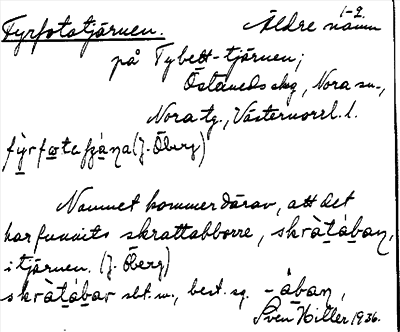 1-2.
Fyrfotatjärnen. Äldre namn
på Tybett-tjärnen;
Östaneds skg, Nora sn.,
Nora tg., Västernorrl. l.
(J. Öberg)
Namnet kommer därav, att det
har funnits skrattabborre, skràtába̱n,
i tjärnen. (J. Öberg)
skràtába̱r sbt. m., best. sg. -ába̱n,
Sven Hiller 1936.